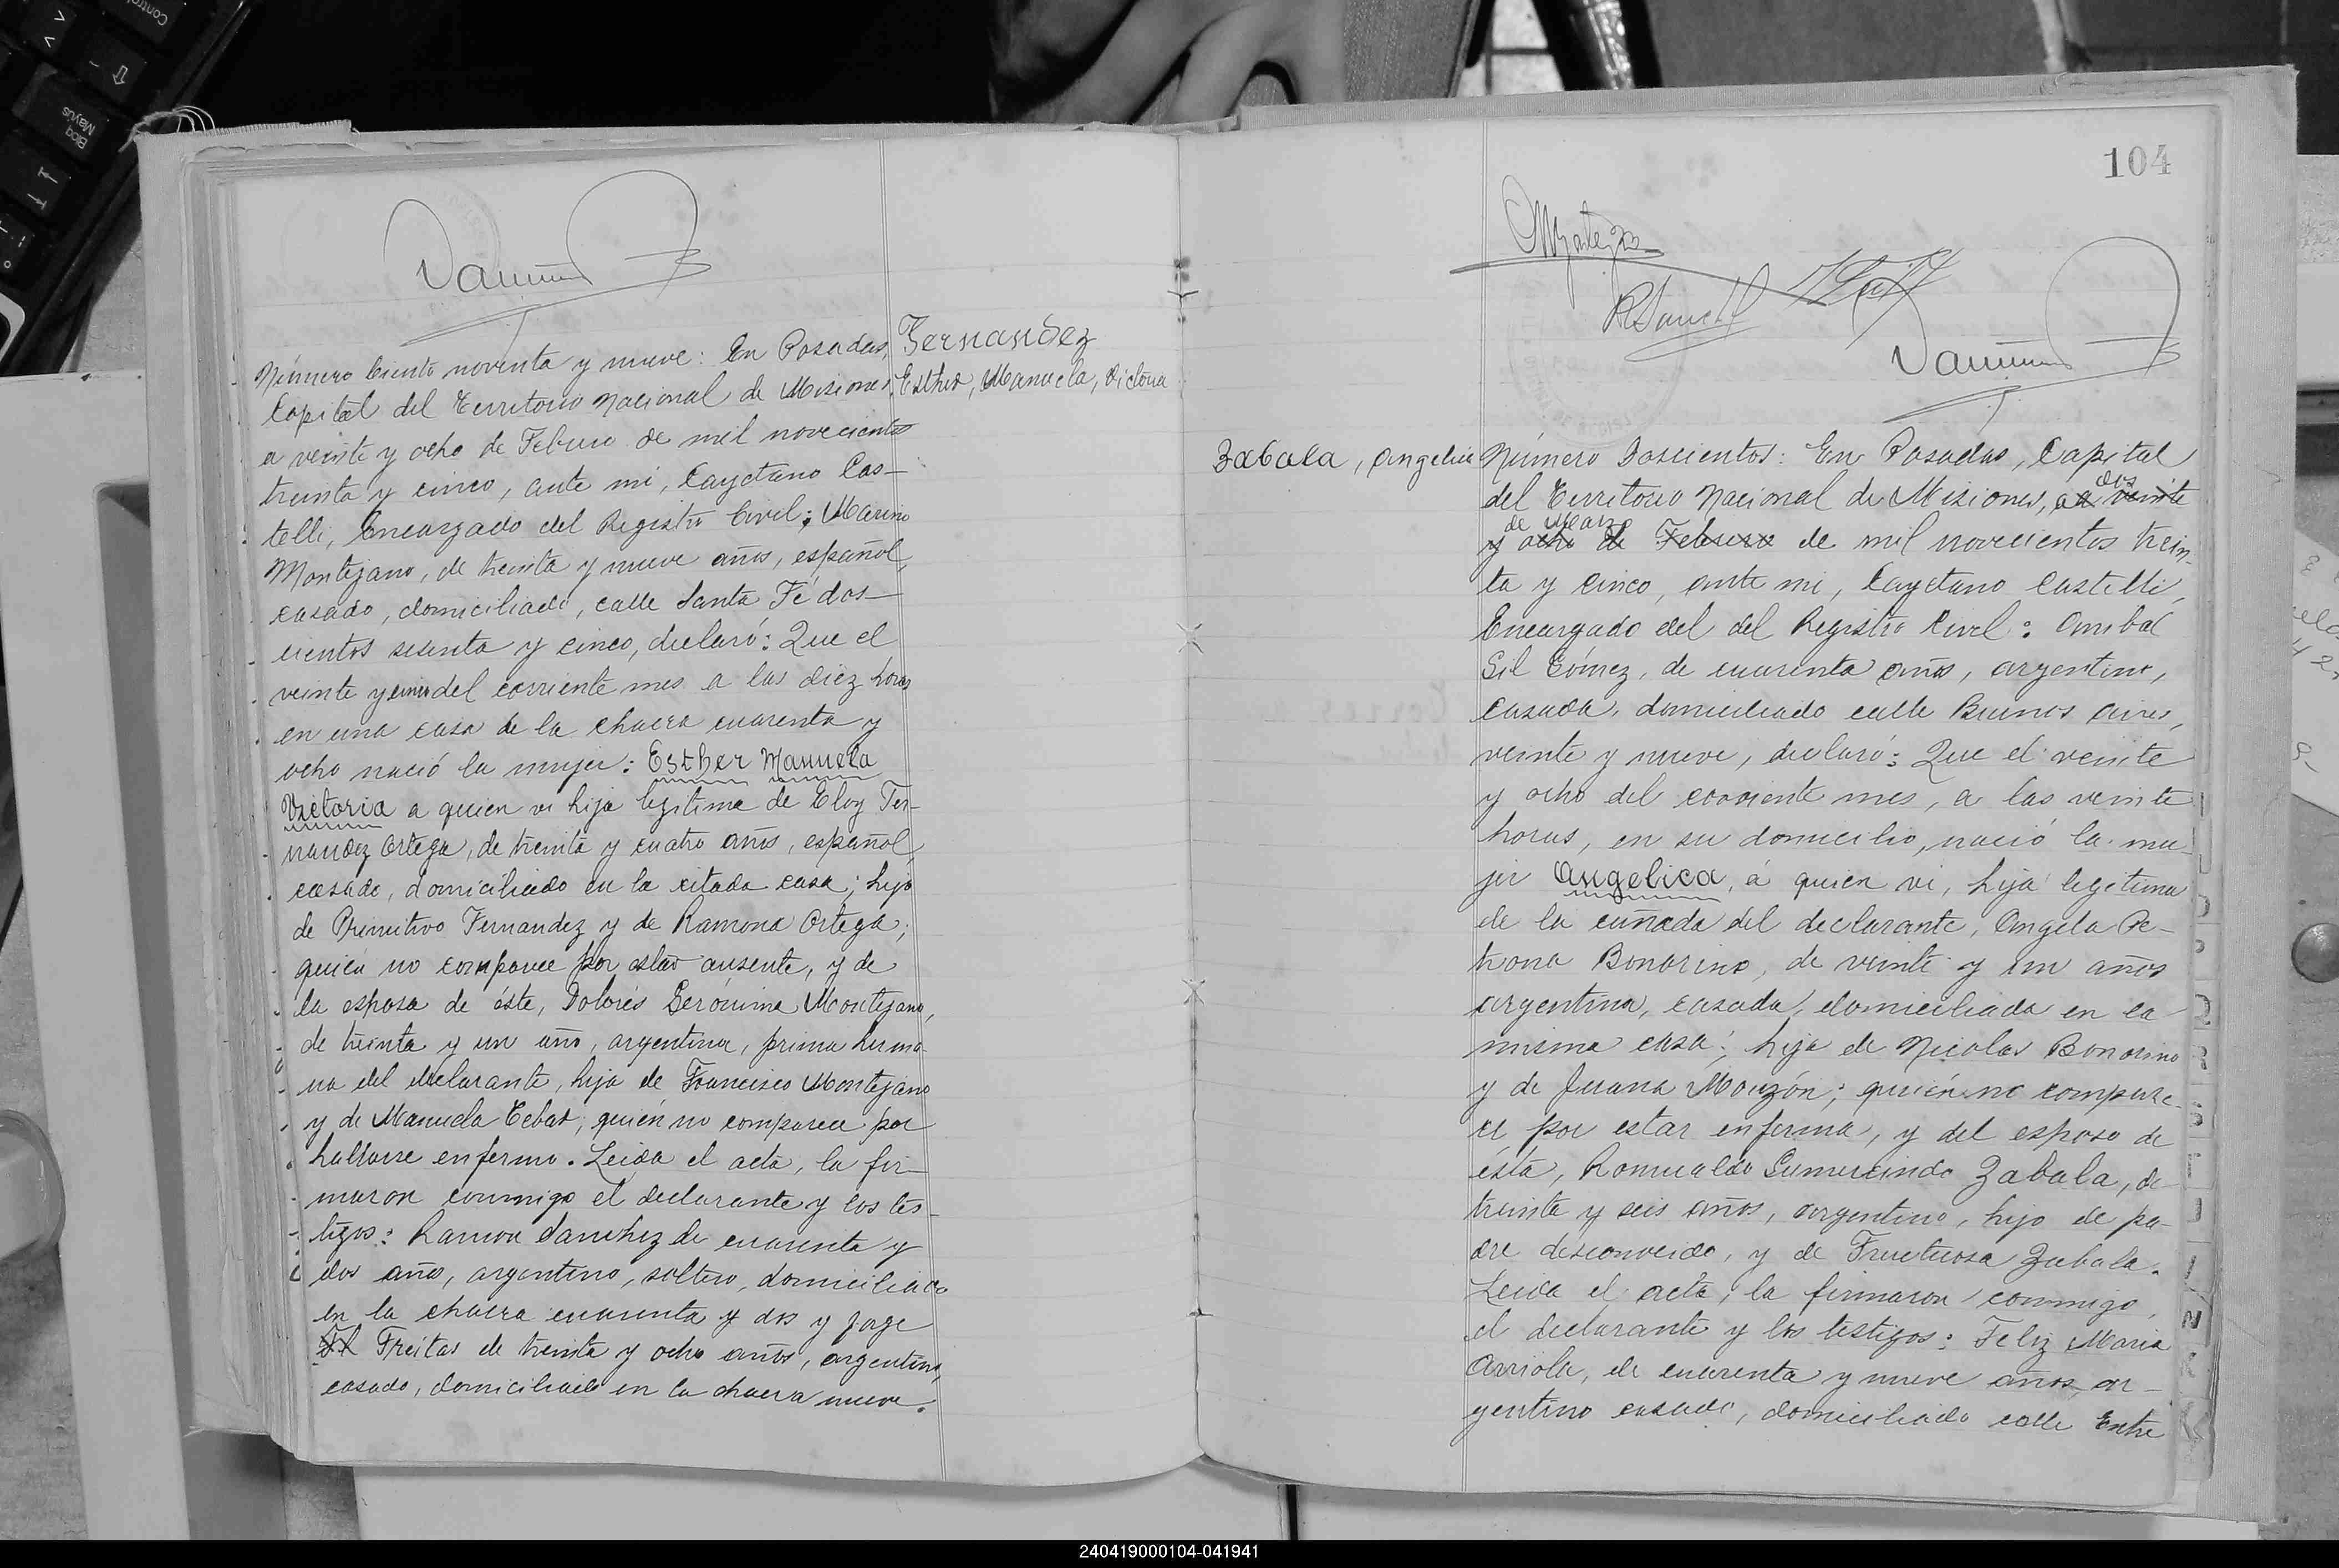 Fernandez
Esther, Manuela, Victoria
Número Ciento noventa y nueve: En Posadas,
Capital del Territorio Nacional de Misiones,
a veinte y ocho de Febrero de mil novecientos
treinta y cinco, ante mi, Cayetano Cas-
telli, Encargado del Registro Civil; Marino
Montejano, de treinta y nueve años, español,
casado, domiciliado, calle Santa Fé dos-
cientos sesenta y cinco, declaró: Que el
veinte y cinco del corriente mes a las diez horas
en una casa de la chacra cuarenta y
ocho nació la mujer: Esther Manuela
Victoria a quien vi hija legitima de Eloy Fer-
nandez Ortega, de treinta y cuatro años, español,
casado, domiciliado en la citada casa; hijo
de Primitivo Fernandez y de Ramona Ortega;
quién no comparece por estar ausente, y de
la esposa de éste, Dolores Gerónima Montejano,
de treinta y un año, argentina, prima herma-
na del declarante, hija de Francisco Montejano
y de Manuela Tebar; quién no comparece por
hallarse enfermo. Leida el acta, la fir-
maron conmigo el declarante y los tes-
tigos: Ramon Sanchez de cuarenta y
dos años, argentino, soltero, domiciliado
en la chacra cuarenta y dos y Jorge
Freitas de treinta y ocho años, argentino,
casado, domiciliado en la chacra nueve.
104
Zabala, Angelica
Número Doscientos: En Posadas, Capital
dos
del Territorio Nacional de Misiones, a veinte
de Marzo
y ocho de Febrero de mil novecientos trein-
ta y cinco, ante mi, Cayetano Castelli,
Encargado del del Registro Civil: Anibal
Gil Gómez, de cuarenta años, argentino,
casado, domiciliado calle Buenos Aires,
veinte y nueve, declaró: Que el veinte
y ocho del corriente mes, a las veinte
horas, en su domicilio, nació la mu-
jer Angelica, á quien vi, hija legitima
de la cuñada del declarante, Angela Pe-
trona Bonorino, de veinte y un años
argentina, casada, domiciliada en la
misma casa; hija de Nicolas Bonorino
y de Juana Monzón; quién no compare-
ce por estar enferma, y del esposo de
ésta, Romualdo Gumercindo Zabala, de
treinta y seis años, argentino, hijo de pa-
dre desconocido, y de Fructuosa Zabala.
Leida el acta, la firmaron conmigo,
el declarante y los testigos: Feliz Maria
Arriola, de cuarenta y nueve años, ar-
gentino casado, domiciliado calle Entre
240419000104-041941